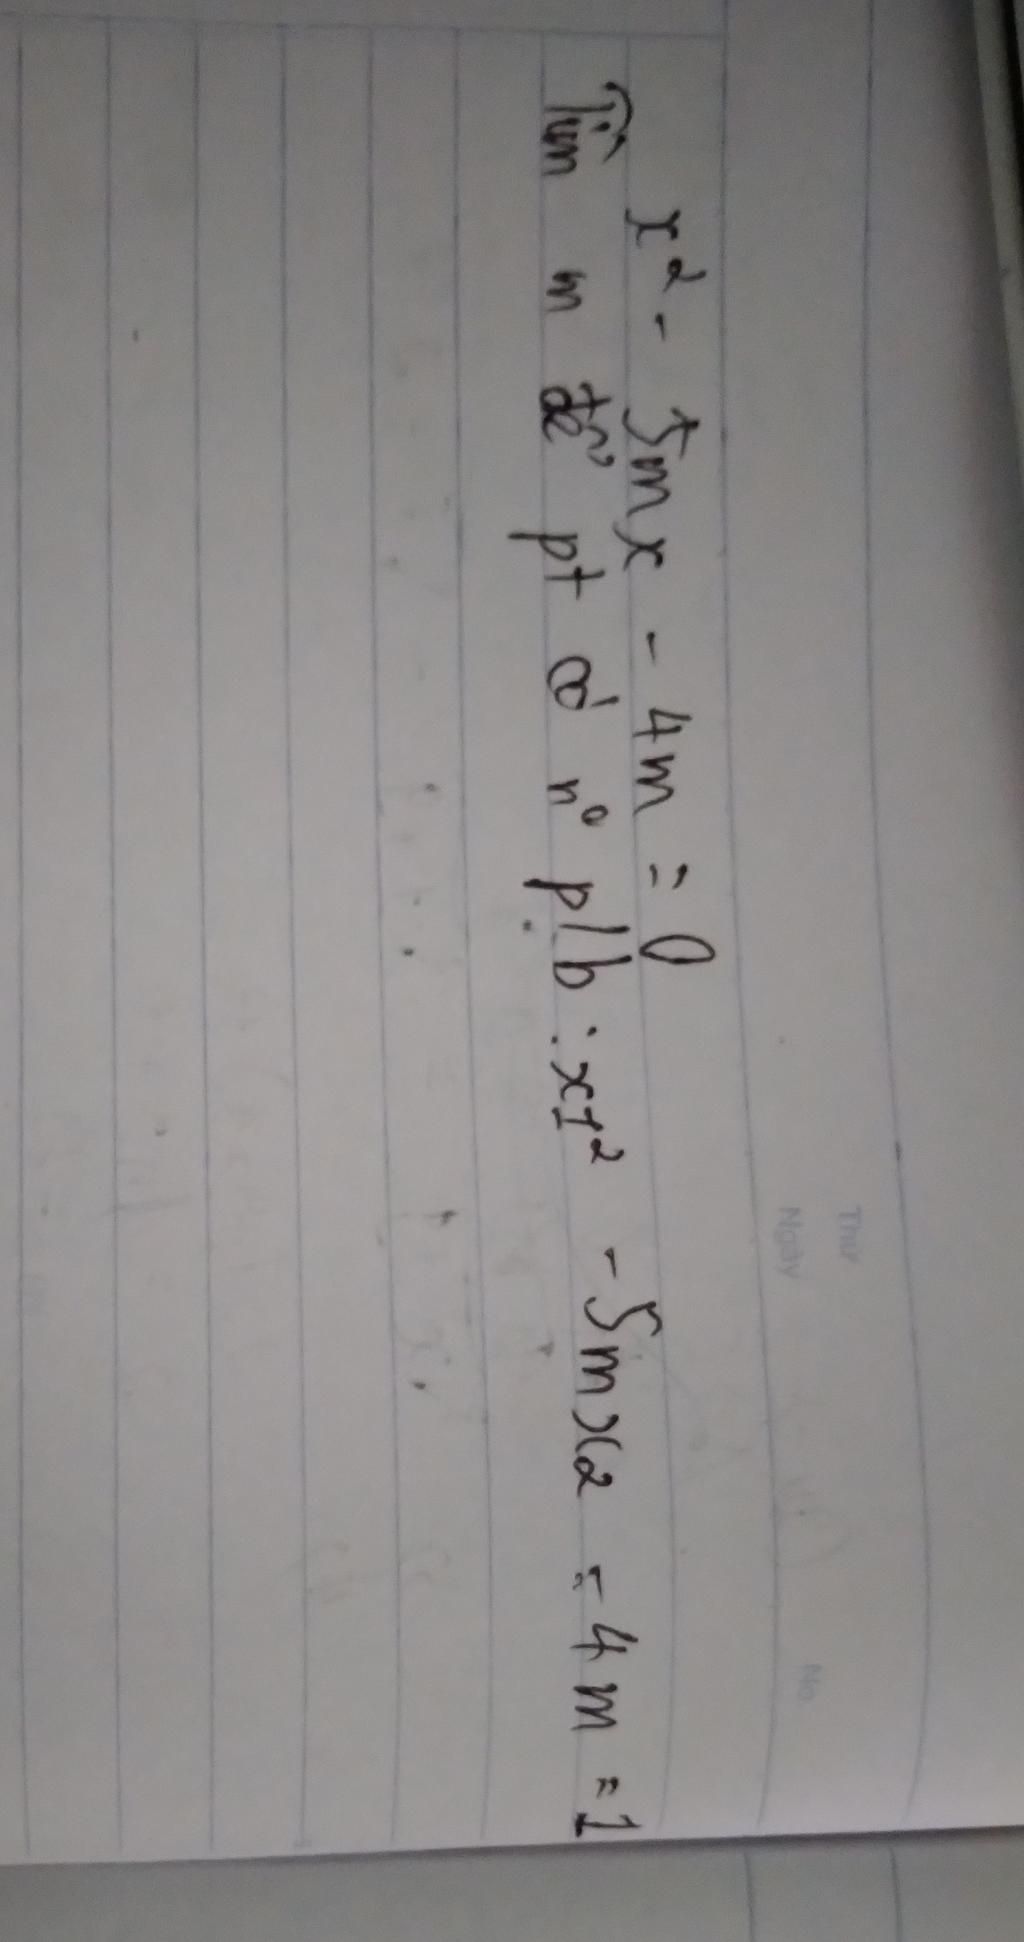 Thứ
Ngày
No.
x² - 5mx - 4m = 0
Tìm m để pt có n° p/b : x1² - 5mx2 - 4m = 1